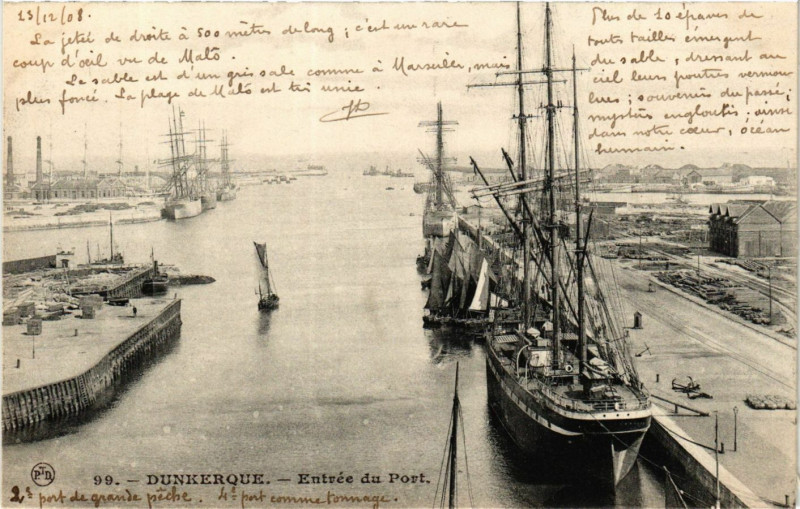 13/12/08.
La jeteé de droite à 500 mètres de long ; c'est un rare
coup d'œil vu de Malo.
Le sable est d'un gris sale comme à Marseille, mais
plus foncé. La plage de Malo est très unie.
Plus de 10 épaves de
toutes tailles émergent
du sable, dressant au
ciel leurs poutres vermou
lues ; souvenirs du passé ;
mystères engloutis ; ainsi
dans notre cœur, océan
humain.
PTD
99. - DUNKERQUE. - Entrée du Port.
2e port de grande pêche. 4e port comme tonnage.